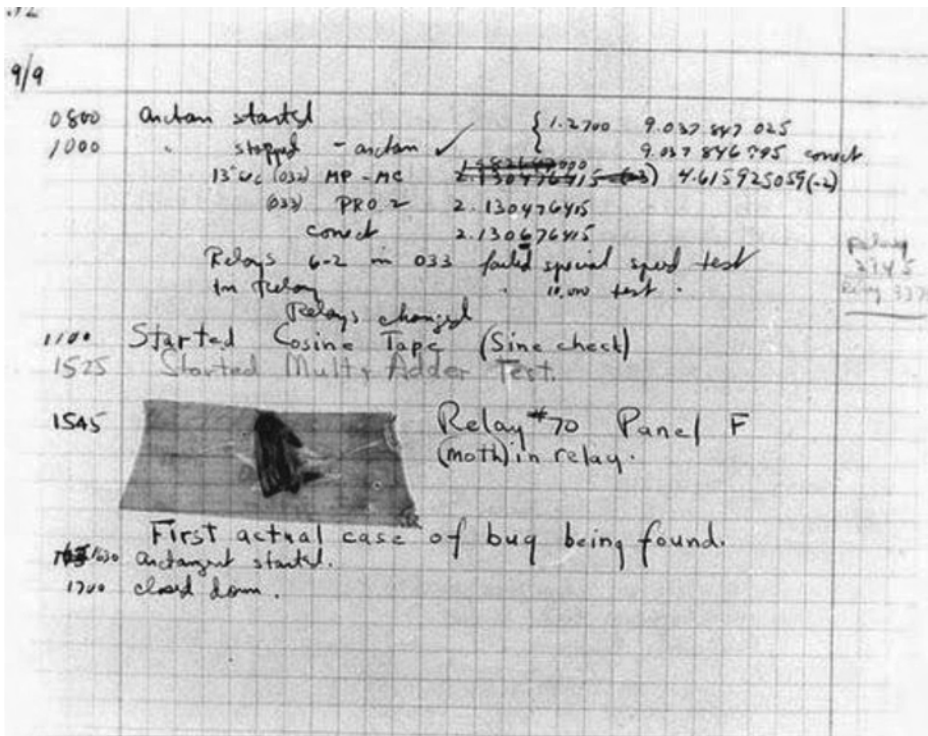 9/9
0800 Antan started
1000 " stopped - antan ✓ { 1.2700 9.037 847 025
9.037 846 795 correct
13"uc (032) MP - MC 2.130476415 (-3) 4.615925059(-2)
(033) PRO 2 2.130476415
correct 2.130676415
Relays 6-2 in 033 failed special speed test
in relay " 10,000 test .
Relay
3145
Relay 337
Relays changed
1100 Started Cosine Tape (Sine check)
1525 Started Mult+ Adder Test.
1545 Relay #70 Panel F
(moth) in relay.
First actual case of bug being found.
1630 antangent started.
1700 closed down.